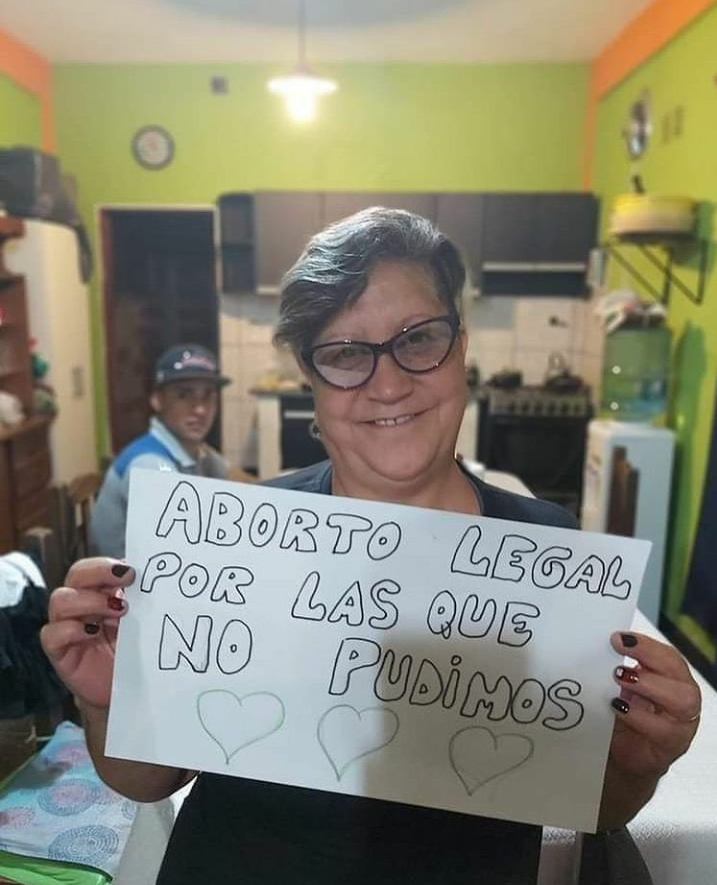 ABORTO LEGAL
POR LAS QUE
NO PUDiMOS